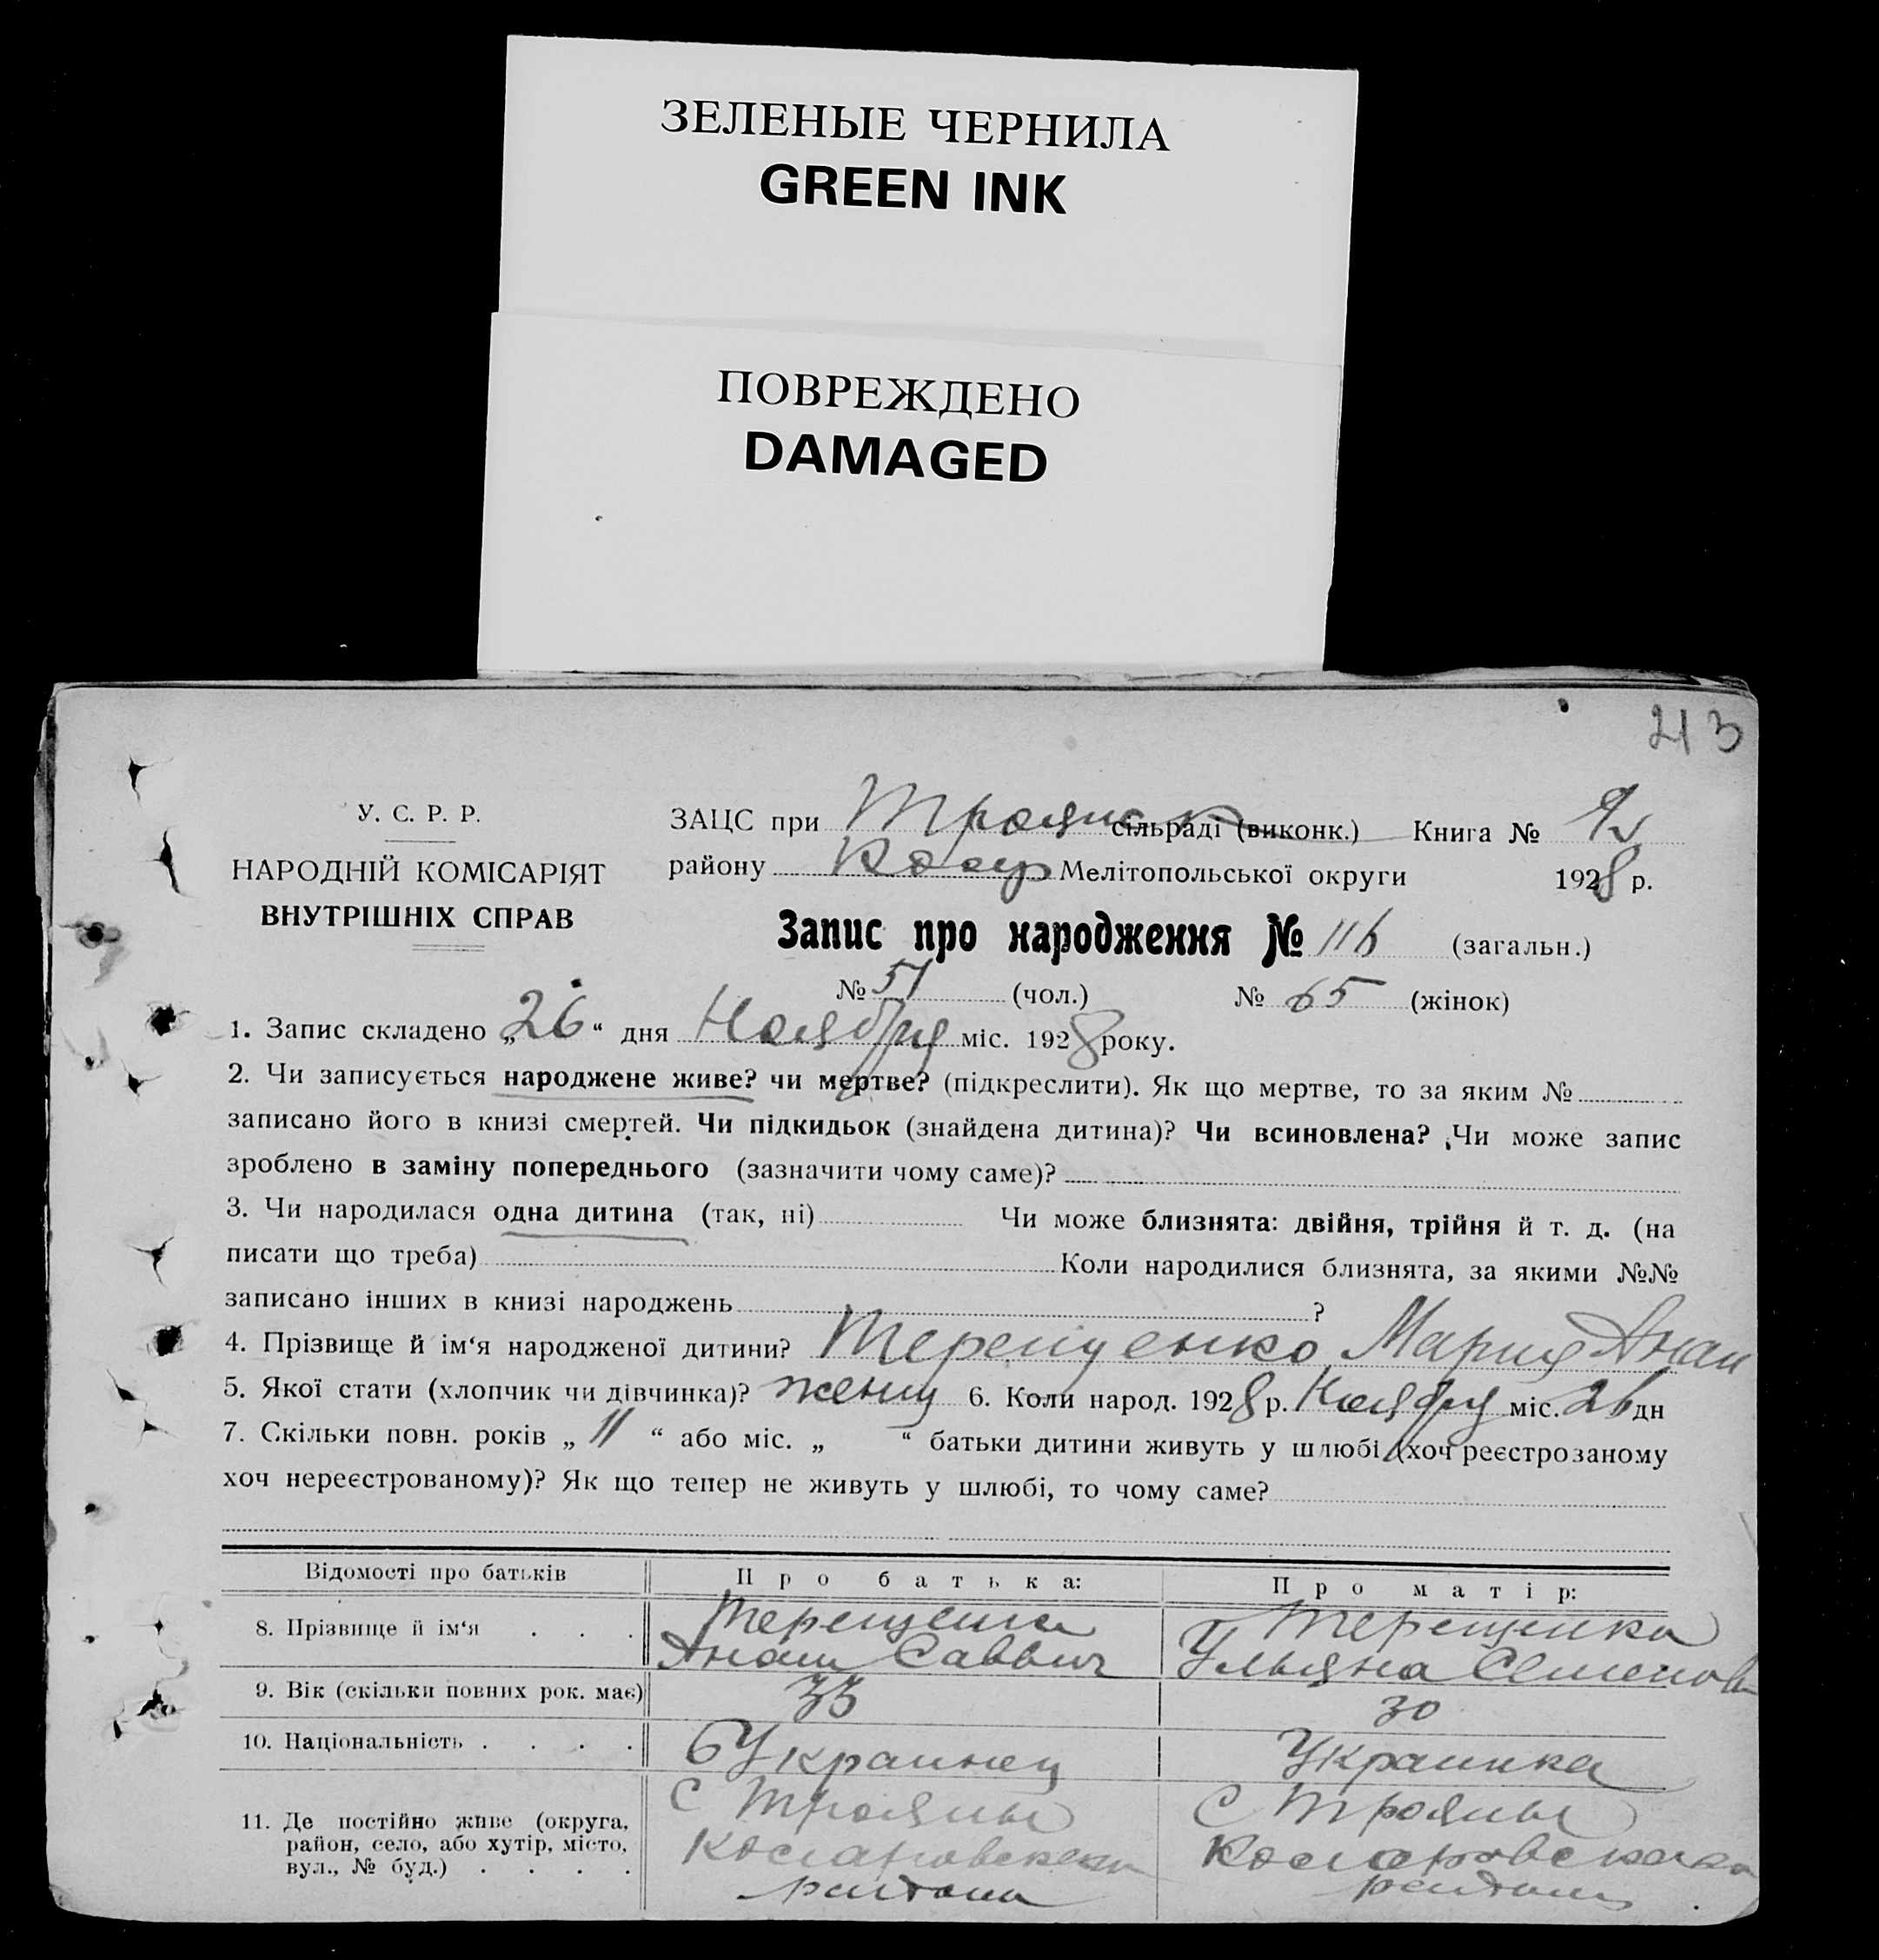 ЗЕЛЕНЫЕ ЧЕРНИЛА
GREEN INK
ПОВРЕЖДЕНО
DAMAGED
213
У. С. Р. Р.
НАРОДНІЙ КОМІСАРІЯТ
ВНУТРІШНІХ СПРАВ
ЗАЦС при Троянск сільраді (виконк.) Книга №
району Мелітопольської округи 1928 р.
Запис про народження № 116 (загальн.)
№ 51 (чол.) № 65 (жінок)
1. Запис складено „26“ дня Ноября міс. 1928 року.
2. Чи записується народжене живе? чи мертве? (підкреслити). Як що мертве, то за яким №
записано його в книзі смертей. Чи підкидьок (знайдена дитина)? Чи всиновлена? Чи може запис
зроблено в заміну попереднього (зазначити чому саме)?
3. Чи народилася одна дитина (так, ні) Чи може близнята: двійня, трійня й т. д. (на
писати що треба) Коли народилися близнята, за якими №№
записано інших в книзі народжень ?
4. Прізвище й ім‘я народженої дитини? Терещенко Мария Анан
5. Якої стати (хлопчик чи дівчинка)? женщ 6. Коли народ. 1928 р. Ноября міс. 26 дн
7. Скільки повн. років „ 11 “ або міс. „ “ батьки дитини живуть у шлюбі (хоч реєстрозаному
хоч нереєстрованому)? Як що тепер не живуть у шлюбі, то чому саме?
Відомості про батьків Про батька: Про матір:
8. Прізвище й ім‘я . . . Терещенко Терещенко
Анан Саввич Ульяна Семенов
9. Вік (скільки повних рок. має) 33 30
10. Національність . . . . Украинец Украинка
11. Де постійно живе (округа, С Трояны С Трояны
район, село, або хутір, місто,
вул., № буд.) . . . . района района